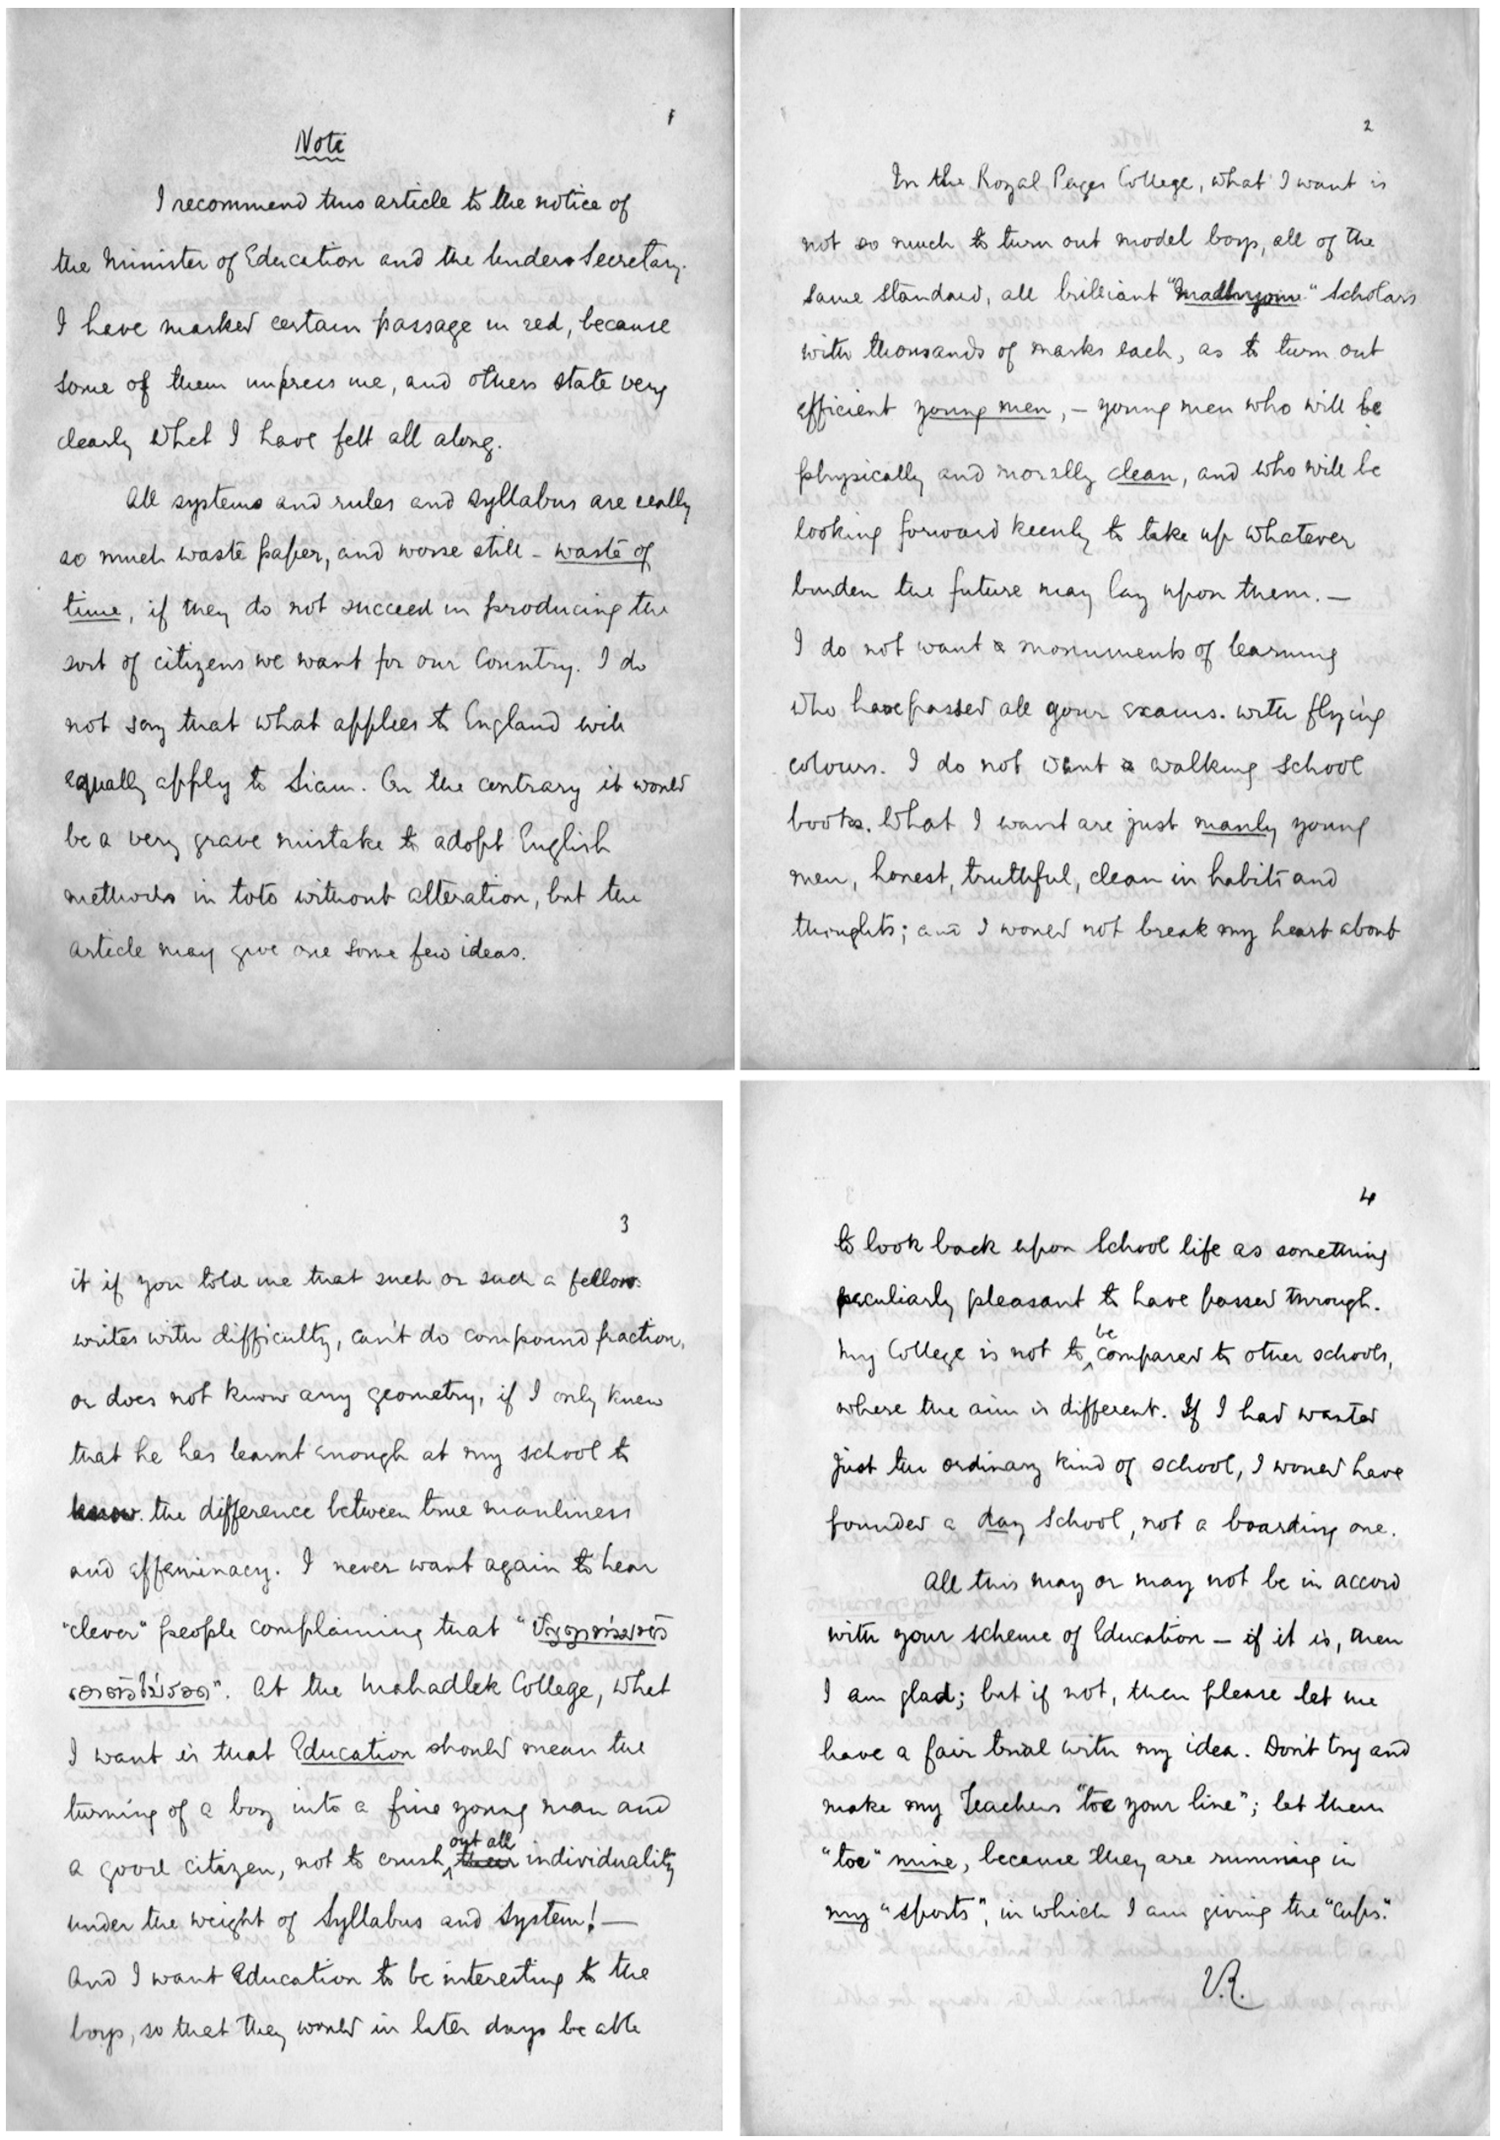 1
Note
I recommend this article to the notice of
the Minister of Education and the Under-Secretary.
I have marked certain passage in red, because
some of them impress me, and others state very
clearly what I have felt all along.
All systems and rules and syllabus are really
so much waste paper, and worse still – waste of
time, if they do not succeed in producing the
sort of citizens we want for our Country. I do
not say that what applies to England will
equally apply to Siam. On the contrary it would
be a very grave mistake to adopt English
methods in toto without alteration, but the
article may give one some few ideas.
2
In the Royal Pages College, what I want is
not so much to turn out model boys, all of the
same standard, all brilliant "Madhyome" Scholars
with thousands of marks each, as to turn out
efficient young men, – young men who will be
physically and morally clean, and who will be
looking forward keenly to take up whatever
burden the future may lay upon them. –
I do not want monuments of learning
who have passed all your exams. with flying
colours. I do not want walking school
books. What I want are just manly young
men, honest, truthful, clean in habits and
thoughts; and I would not break my heart about
3
it if you told me that such or such a fellow
writes with difficulty, can't do compound fraction,
or does not know any geometry, if I only knew
that he has learnt enough at my school to
know the difference between true manliness
and effeminacy. I never want again to hear
"clever" people complaining that "
". At the Mahadlek College, what
I want is that Education should mean the
turning of a boy into a fine young man and
a good citizen, not to crush out all individuality
under the weight of Syllabus and System! –
And I want Education to be interesting to the
boys, so that they would in later days be able
4
to look back upon School life as something
peculiarly pleasant to have passed through.
My College is not to be compared to other schools,
where the aim is different. If I had wanted
just the ordinary kind of school, I would have
founded a day School, not a boarding one.
All this may or may not be in accord
with your scheme of Education – if it is, then
I am glad; but if not, then please let me
have a fair trial with my idea. Don't try and
make my Teachers "toe your line"; let them
"toe" mine, because they are running in
my "sports", in which I am giving the "Cups".
V.R.